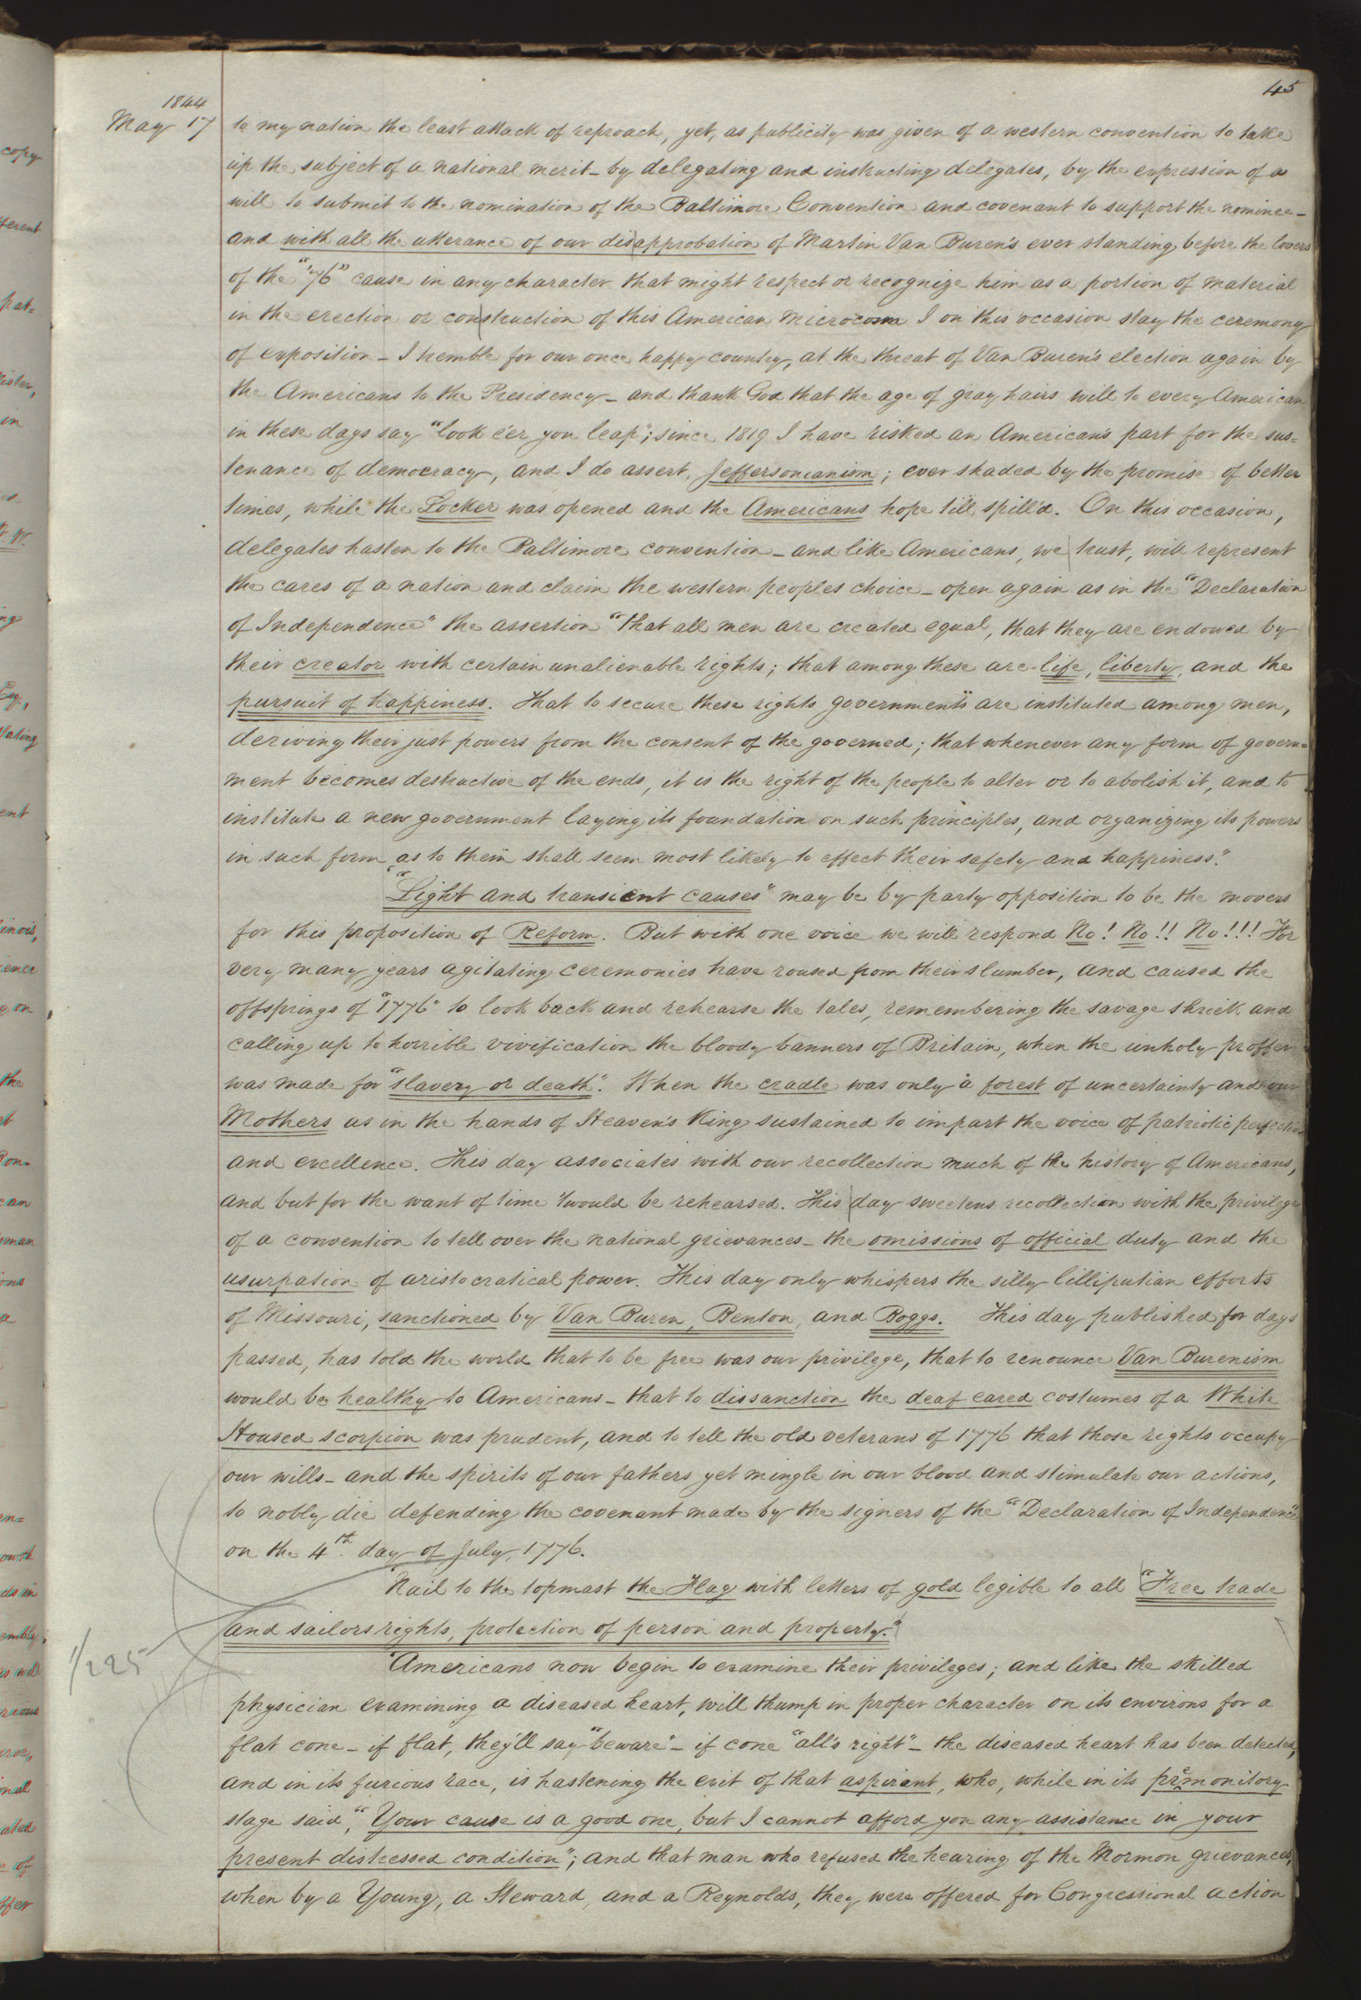 45
1844
May 17
to my nation the least attack of reproach, yet, as publicity was given of a western convention to take
up the subject of a national merit - by delegating and instructing delegates, by the expression of a
will to submit to the nomination of the Baltimore Convention and covenant to support the nominee -
and with all the utterance of our disapprobation of Martin Van Buren's ever standing before the lovers
of the "'76" cause in any character that might respect or recognize him as a portion of material
in the erection or construction of this American Microcosm I on this occasion stay the ceremony
of exposition - I tremble for our once happy country, at the threat of Van Buren's election again by
the Americans to the Presidency - and thank God that the age of gray hairs will to every American
in these days say "look e'er you leap"; since 1819 I have risked an American's part for the sus=
tenance of democracy, and I do assert, Jeffersonianism; ever shaded by the promise of better
times, while the Locker was opened and the Americans hope till spill'd. On this occasion,
delegates hasten to the Baltimore convention - and like Americans, we trust, will represent
the cares of a nation and claim the western peoples choice - open again as in the "Declaration
of Independence" the assertion "that all men are created equal, that they are endowed by
their creator with certain unalienable rights; that among these are life, liberty, and the
pursuit of happiness. That to secure these rights governments are instituted among men,
deriving their just powers from the consent of the governed; that whenever any form of govern=
ment becomes destructive of the ends, it is the right of the people to alter or to abolish it, and to
institute a new government laying its foundation on such principles, and organizing its powers
in such form as to them shall seem most likely to effect their safety and happiness."
"Light and transient causes" may be by party opposition to be the movers
for this proposition of Reform. But with one voice we will respond No! No!! No!!! For
very many years agitating ceremonies have roused from their slumber, and caused the
offsprings of "1776" to look back and rehearse the tales, remembering the savage shriek and
calling up to horrible vivification the bloody banners of Britain, when the unholy proffer
was made for "slavery or death". When the cradle was only a forest of uncertainty and our
Mothers as in the hands of Heaven's King sustained to impart the voice of patriotic perfection
and excellence. This day associates with our recollection much of the history of Americans,
and but for the want of time 'twould be rehearsed. This day sweetens recollection with the privilege
of a convention to tell over the national grievances - the omissions of official duty and the
usurpation of aristocratical power. This day only whispers the silly lilliputian efforts
of Missouri, sanctioned by Van Buren, Benton, and Boggs. This day published for days
passed, has told the world that to be free was our privilege, that to renounce Van Burenism
would be healthy to Americans - that to dissanction the deaf eared costumes of a White
Housed scorpion was prudent, and to tell the old veterans of 1776 that those rights occupy
our wills - and the spirits of our fathers yet mingle in our blood and stimulate our actions,
to nobly die defending the covenant made by the signers of the "Declaration of Independence"
on the 4th. day of July, 1776.
"Nail to the topmast the Flag with letters of gold legible to all "Free trade
and sailors rights, protection of person and property."
"Americans now begin to examine their privileges; and like the skilled
physician examining a diseased heart, will thump in proper character on its environs for a
flat cone - if flat, they'll say "beware" - if cone "all's right" - the diseased heart has been detected,
and in its furious race, is hastening the exit of that aspirant, who, while in its premonitory
stage said, "Your cause is a good one, but I cannot afford you any assistance in your
present distressed condition"; and that man who refused the hearing of the Mormon grievances,
when by a Young, a Steward, and a Reynolds, they were offered for Congressional action
1/225